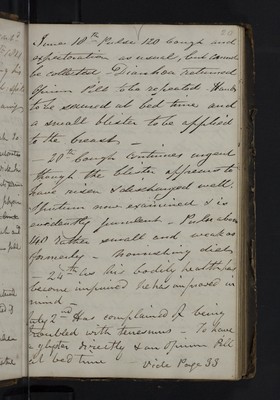 June 18th Pulse 120 Cough and
expectoration as usual, but cannot
be collected. Diarrhoea returned
Opium Pill to be repeated. Hands
to be secured at bed time and
a small blister to be applied
to the breast. —
— 20th Cough continues urgent
though the blister appears to
have risen & discharged well.
Sputum now examined & is
evidently purulent. Pulse above
140 rather small and weak as
formerly — Nourishing diet
— 24th As his bodily health has
become impaired he has improved in
mind —
July 2nd Has complained of being
troubled with tenesmus — To have
a glyster directly & an opium Pill
at bed time — Vide Page 33